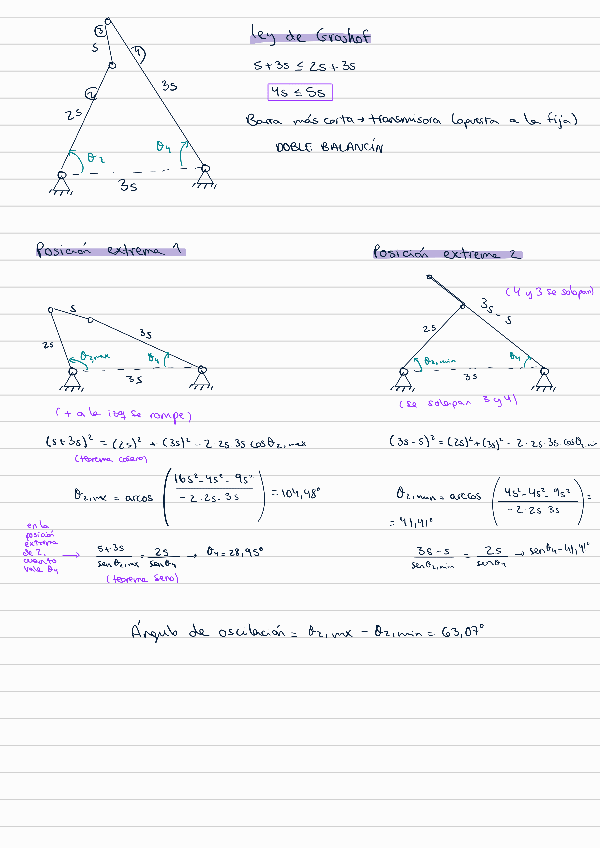 Ley de Grashof
s+3s ≤ 2s+3s
4s ≤ 5s
Barra más corta → transmisora (opuesta a la fija)
DOBLE BALANCÍN
3
s
4
2
3s
2s
θ2
θ4
3s
Posición extrema 1
s
3s
2s
θ2,max
θ4
3s
(+ a la izq se rompe)
(s+3s)² = (2s)² + (3s)² - 2·2s·3s cosθ2,max
(teorema coseno)
θ2,mx = arcos (16s²-4s²-9s² / -2·2s·3s) = 104,48°
en la
posición
extrema
de 2,
cuanto
vale θ4
→ s+3s / senθ2,mx = 2s / senθ4 → θ4 = 28,95°
(teorema seno)
Posición extrema 2
(4 y 3 se solapan)
3s - s
2s
θ2,min
θ4
3s
(se solapan 3 y 4)
(3s-s)² = (2s)² + (3s)² - 2·2s·3s cosθ2,m
θ2,min = arccos (4s²-4s²-9s² / -2·2s·3s) =
= 41,41°
3s-s / senθ2,min = 2s / senθ4 → senθ4 = 41,41°
Ángulo de oscilación = θ2,mx - θ2,min = 63,07°